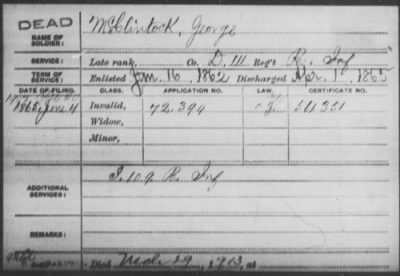 DEAD
NAME OF SOLDIER: McClintock, George
SERVICE: Late rank, Co. D, 111 Reg't Pa. Inf
TERM OF SERVICE: Enlisted Jan. 16, 1862 Discharged Apr. 1, 1865
DATE OF FILING. CLASS. APPLICATION NO. LAW. CERTIFICATE NO.
1865, June 4 Invalid, 72.394
Widow,
Minor,
ADDITIONAL SERVICES: I. 109 Pa. Inf
REMARKS:
Died Mch 29, 1913, at